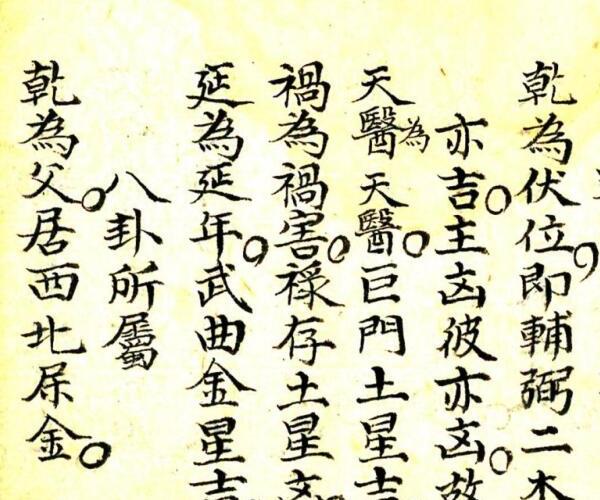 乾為伏位。即輔弼二木
亦吉。主凶彼亦凶。故
天醫為天醫。巨門土星吉
禍為禍害。祿存土星凶
延為延年。武曲金星吉
八卦所屬
乾為父。居西北屬金。